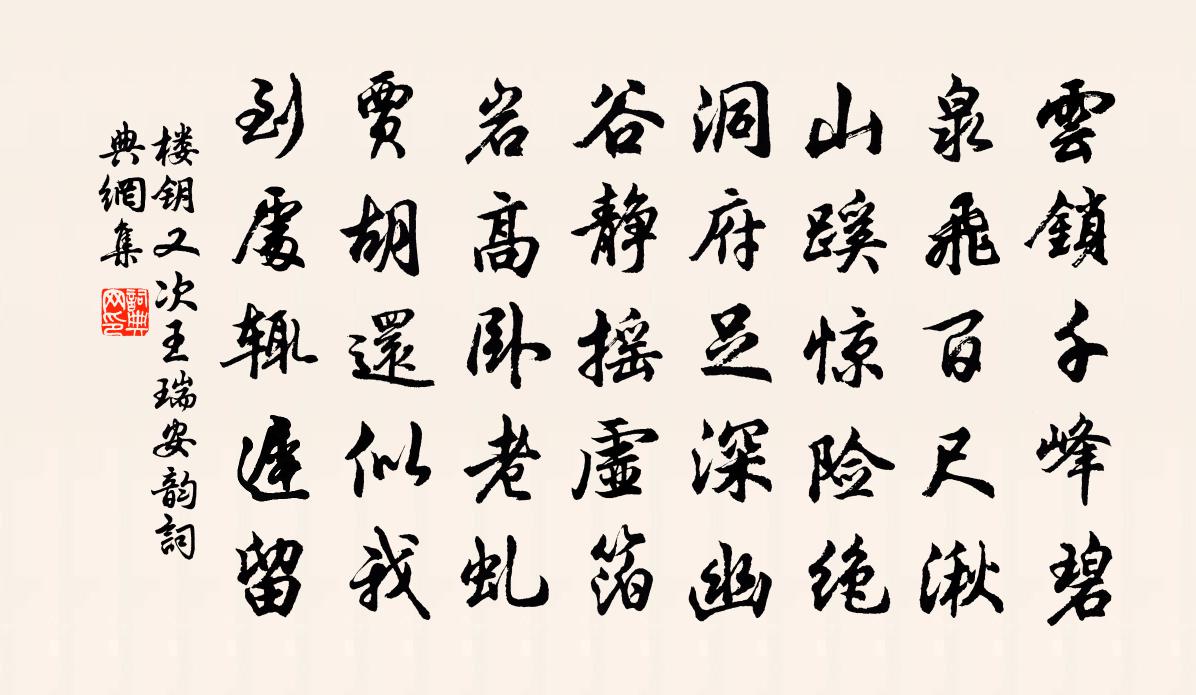 雲鎖千峰碧
泉飛百尺湫
山蹊惊险绝
洞府足深幽
谷静摇虚箔
岩高卧老虬
贾胡還似我
到處辄遲留
楼钥又次王瑞安韵詞
典網集
詞典
网印